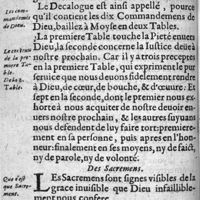 Les commandemens de Dieu.
Le Decalogue est ainsi appellé, pource
qu'il contient les dix Commandemens de
Dieu, baillez à Moyse en deux Tables.
La premiere Table touche la Pieté enuers
Dieu, la seconde concerne la Iustice deuë à
nostre prochain. Car il y a trois preceptes
en la premiere Table, qui expriment le pur
seruice que nous deuons fidelement rendre
à Dieu, de cœur, de bouche, & d'œuure: Et
sept en la seconde, dont le premier nous ex
horte à nous acquiter de nostre deuoir en-
uers nostre prochain, & les autres suyuans
nous defendent de luy faire tort: premiere-
ment en sa personne, puis apres en l'hon-
neur: finalement en ses moyens, ny de faict,
ny de parole, ny de volonté.
Table.
Des Sacremens.
Que c'est
que Sacre-
mens.
LEs Sacremens sont signes visibles de la
grace inuisible que Dieu infaillible-
ment nous confere